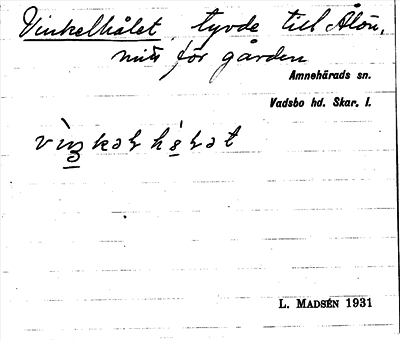 Vinkelhålet, tyvde till Ålön,
mitt för gården
Amnehärads sn.
Vadsbo hd. Skar. l.
L. MADSÉN 1931